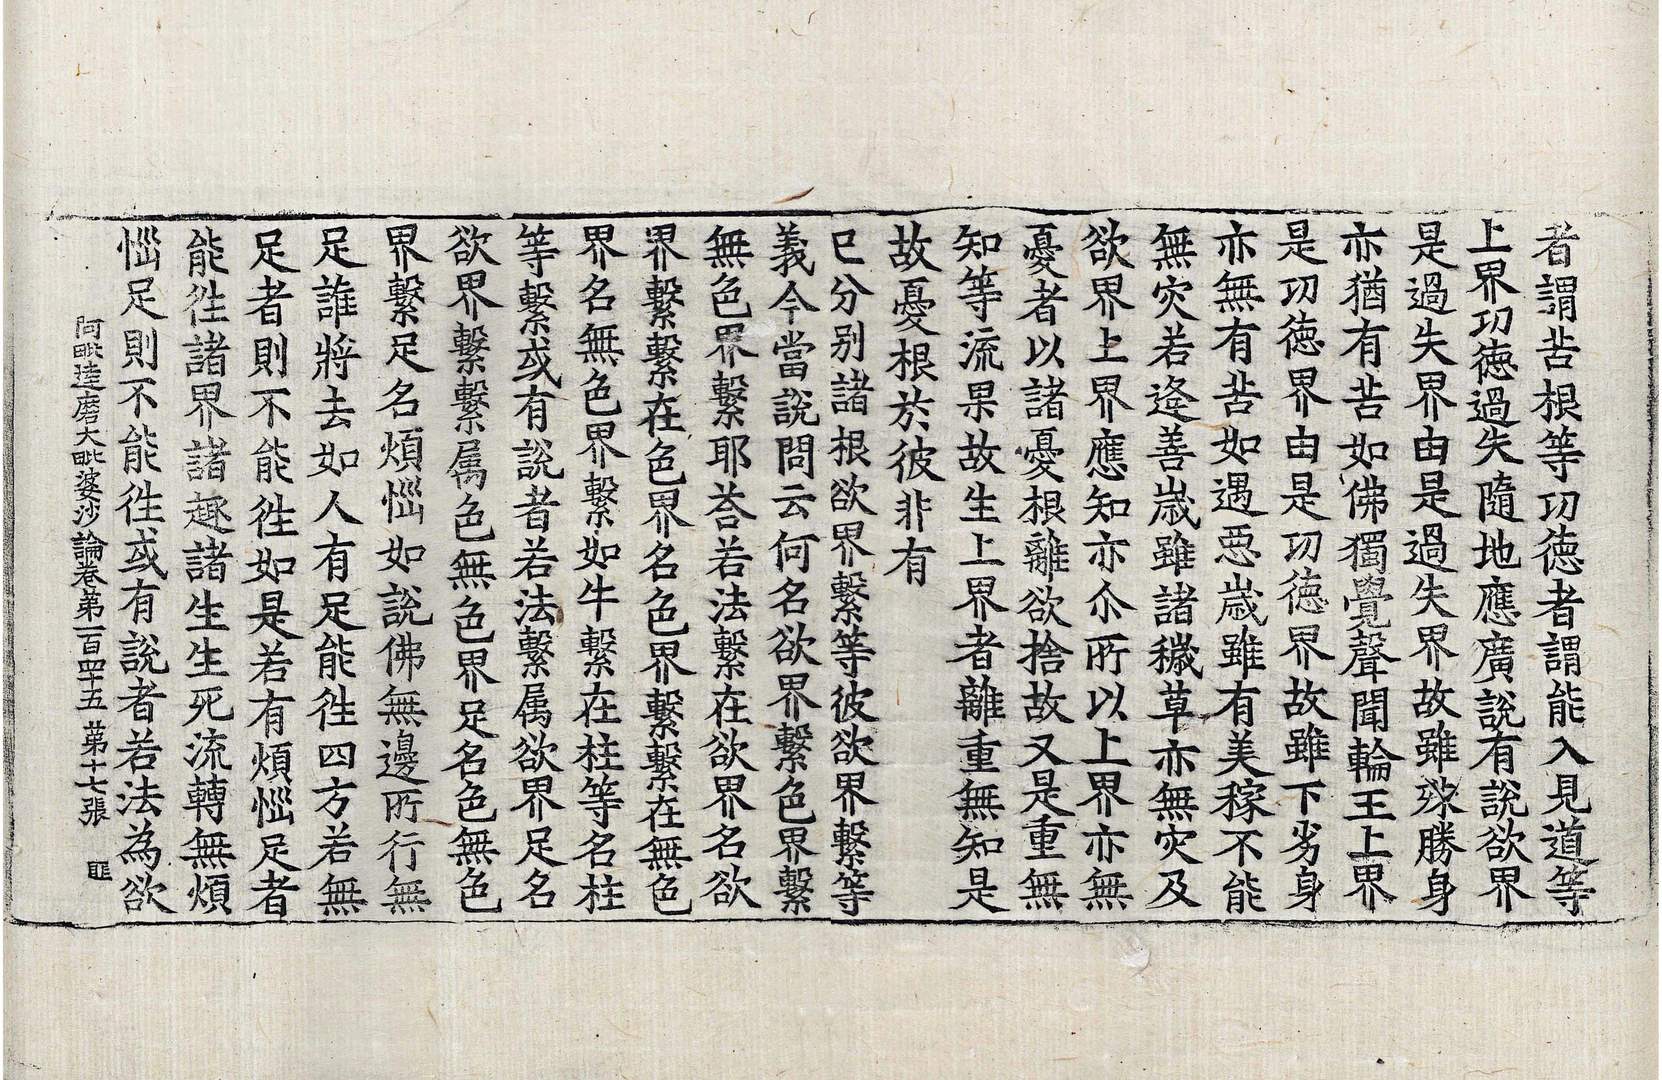 者謂苦根等功德者謂能入見道等
上界功德過失隨地應廣說有說欲界
是過失界由是過失界故雖殊勝身
亦猶有苦如佛獨覺聲聞輪王上界
是功德界由是功德界故雖下劣身
亦無有苦如遇惡歲雖有美稼不能
無灾若逢善歲雖諸穢草亦無灾及
欲界上界應知亦尒所以上界亦無
憂者以諸憂根離欲捨故又是重無
知等流果故生上界者離重無知是
故憂根於彼非有
已分別諸根欲界繫等彼欲界繫等
義今當說問云何名欲界繫色界繫
無色界繫耶荅若法繫在欲界名欲
界繫繫在色界名色界繫繫在無色
界名無色界繫如牛繫在柱等名柱
等繫或有說者若法繫属欲界足名
欲界繫繫属色無色界足名色無色
界繫足名煩惱如說佛無邊所行無
足誰將去如人有足能徃四方若無
足者則不能徃如是若有煩惱足者
能徃諸界諸趣諸生生死流轉無煩
惱足則不能徃或有說者若法為欲
阿毗達磨大毗婆沙論卷第一百四十五 第十七張 匪